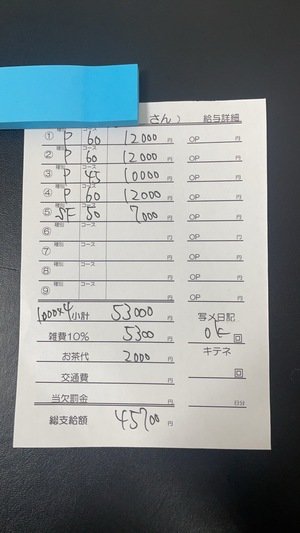 さん） 給与詳細
① 種別 P コース 60 12000円 OP 円
② 種別 P コース 60 12000円 OP 円
③ 種別 P コース 45 10000円 OP 円
④ 種別 P コース 60 12000円 OP 円
⑤ 種別 SF コース 50 7000円 OP 円
⑥ 種別 コース 円 OP 円
⑦ 種別 コース 円 OP 円
⑧ 種別 コース 円 OP 円
⑨ 種別 コース 円 OP 円
1000×4 小計 53000円 写メ日記
雑費10% 5300円 OK 回
お茶代 2000円 キテネ
交通費 円 回
当欠罰金 円 日分
総支給額 45700円